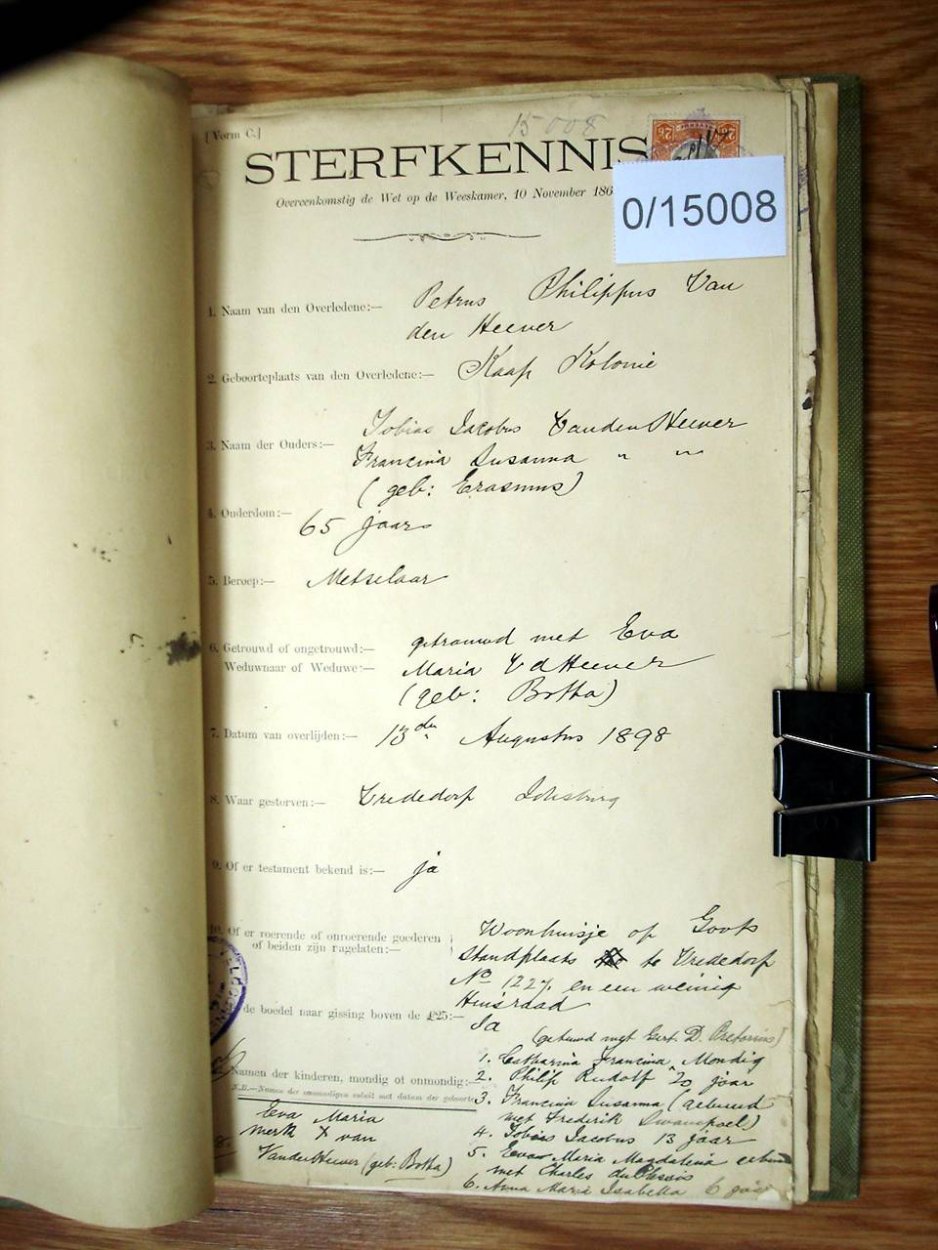 [Vorm C.]
15008
STERFKENNIS
Overeenkomstig de Wet op de Weeskamer, 10 November 186
0/15008
1. Naam van den Overledene:— Petrus Philippus Van
den Heever
2. Geboorteplaats van den Overledene:— Kaap Kolonie
3. Naam der Ouders:— Tobias Jacobus Van den Heever
Francina Susanna " "
(geb: Erasmus)
4. Ouderdom:— 65 jaar
5. Beroep:— Metselaar
6. Getrouwd of ongetrouwd:— getrouwd met Eva
Weduwnaar of Weduwe:— Maria V d Heever
(geb: Botha)
7. Datum van overlijden:— 13de Augustus 1898
8. Waar gestorven:— Vrededorp Johsburg
9. Of er testament bekend is:— ja
10. Of er roerende of onroerende goederen of beiden zijn nagelaten:— Woonhuisje op Govts
Standplaats te Vrededorp
No 1227. en een weinig
Huisraad
de boedel naar gissing boven de £25:— Ja
(getuwd met Gert. D. Pretorius)
Namen der kinderen, mondig of onmondig:— 1. Catharina Francina, Mondig
2. Philip Rudolf 20 jaar
N.B.—Namen der onmondigen voluit met datum der geboorte
3. Francina Susanna (getuwd
met Frederik Swanepoel)
4. Tobias Jacobus 13 jaar
5. Eva Maria Magdalena
met Charles du Plessis
6. Anna Maria Isabella 6 jaar
Eva Maria
merk X van
Van der Heever (geb: Botha)